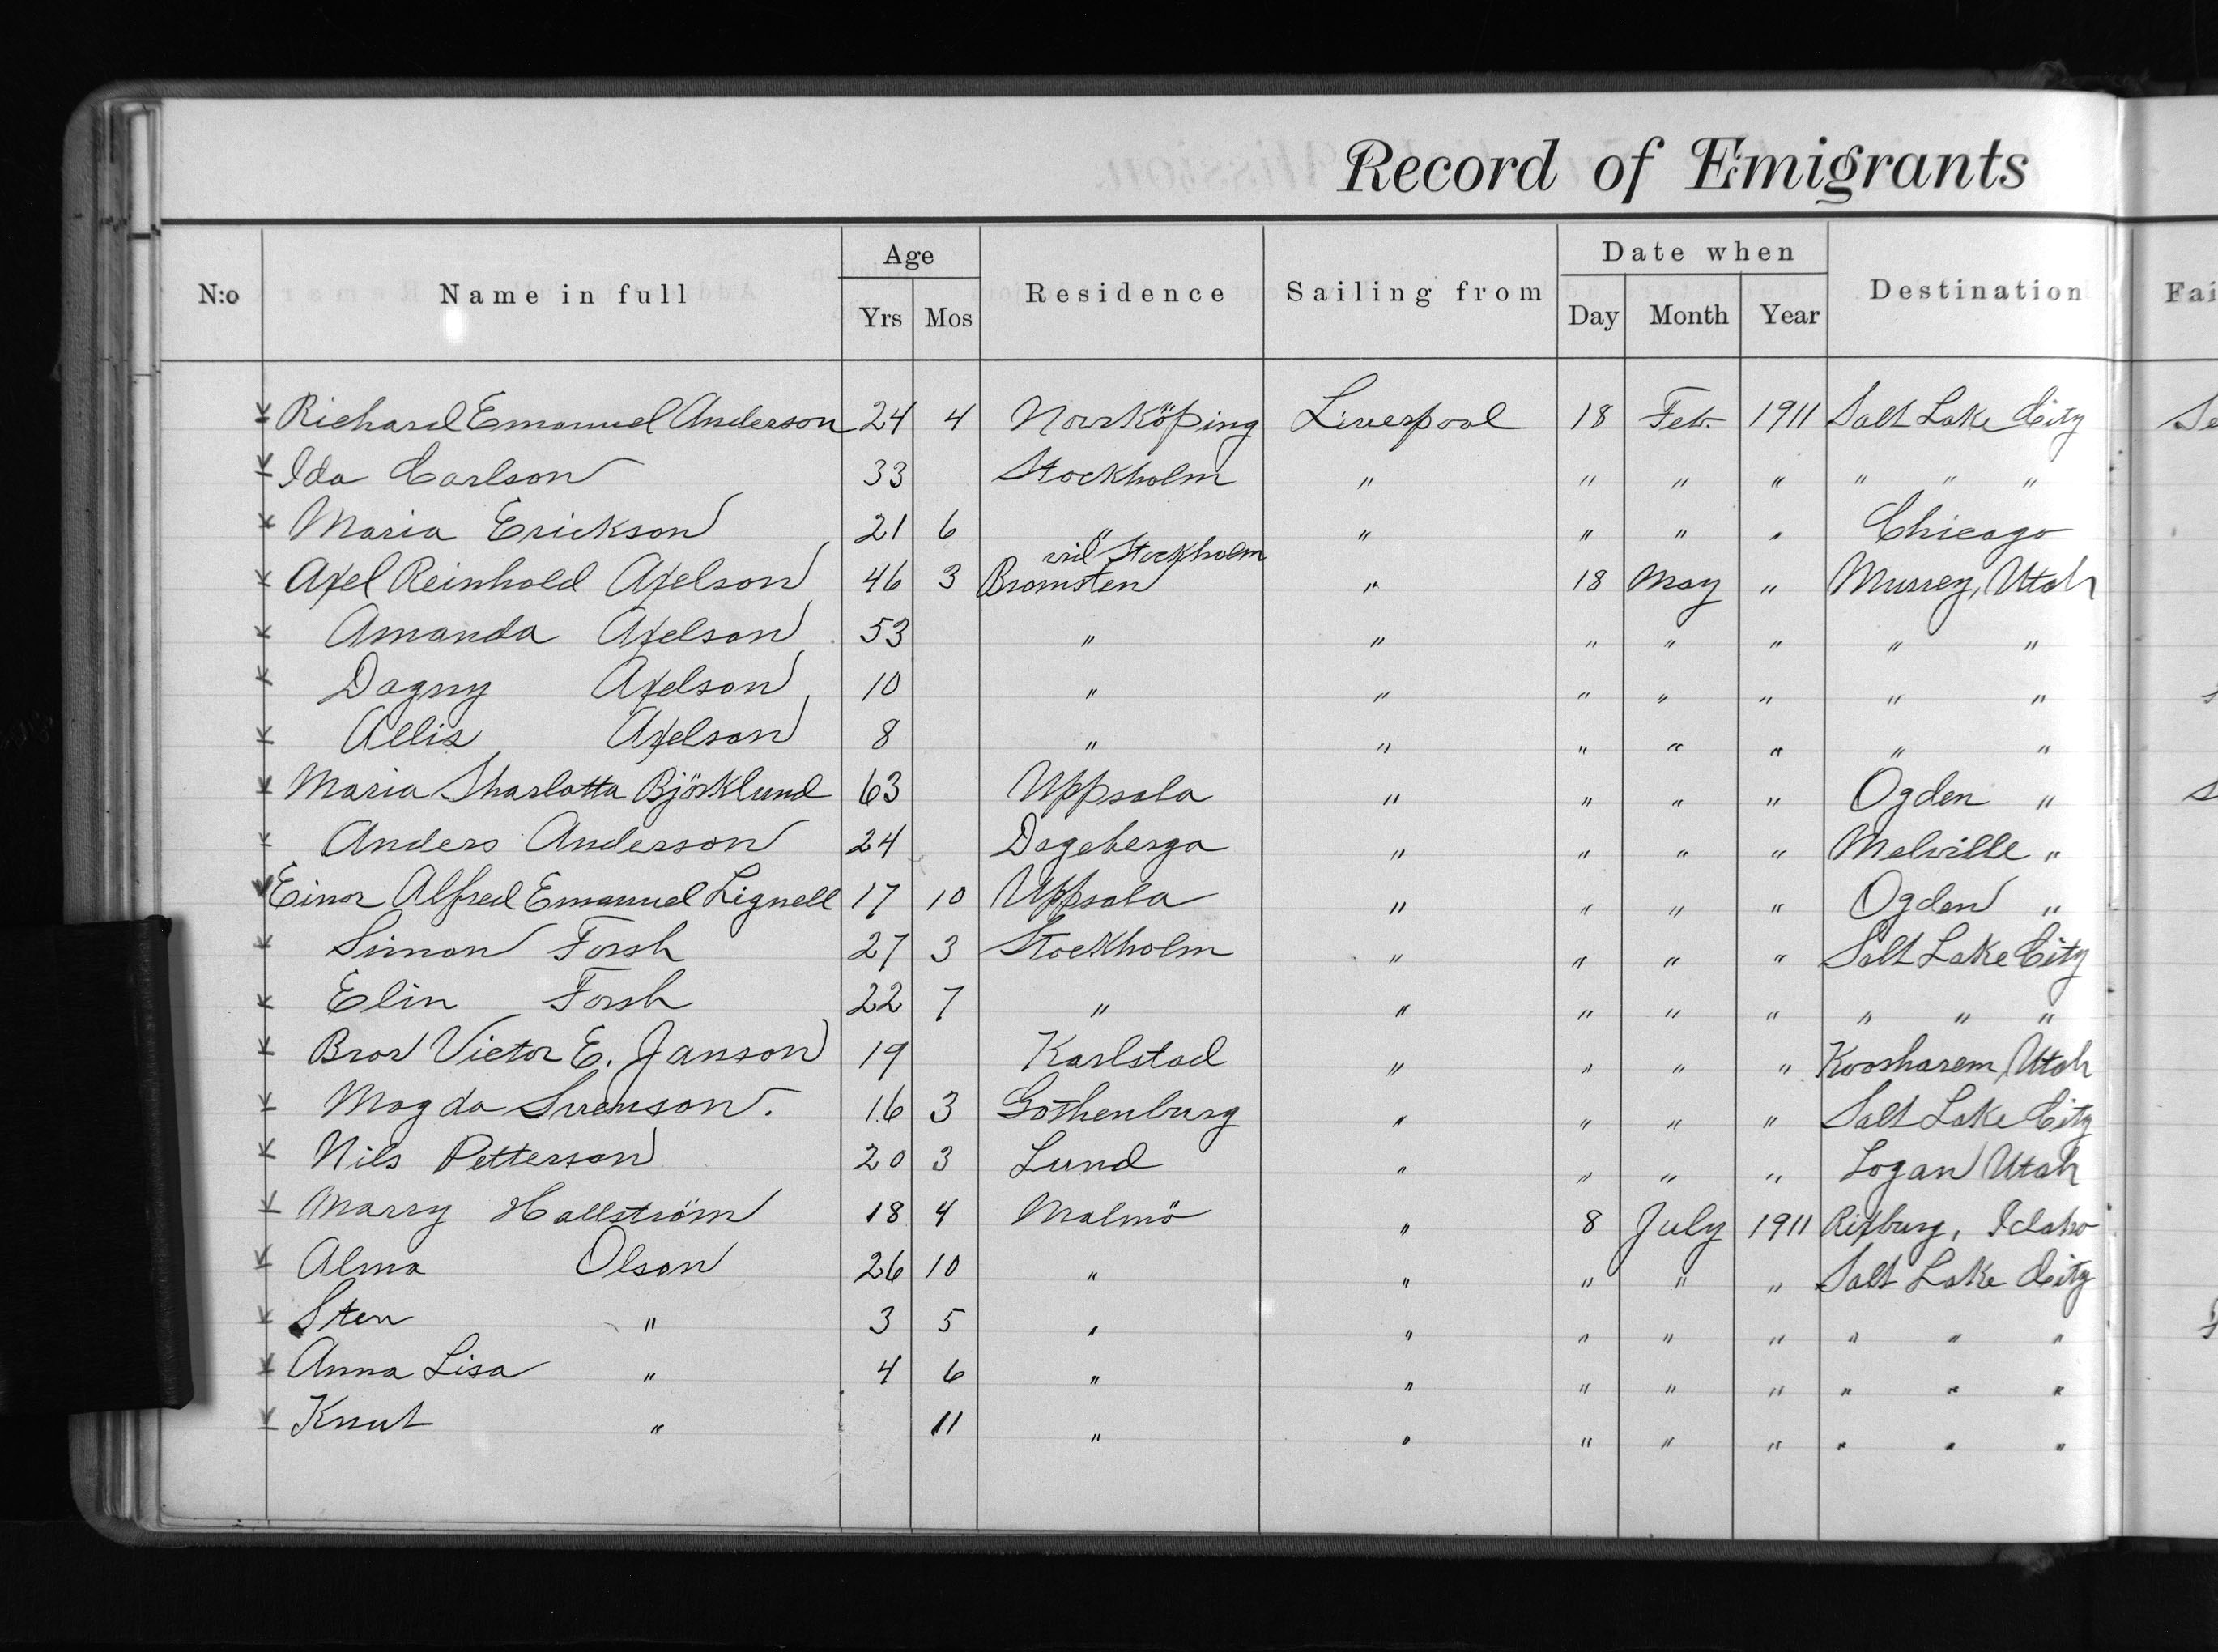 Record of Emigrants
N:o Name in full Age Residence Sailing from Date when Destination Fai
Yrs Mos Day Month Year
Richard Emanuel Anderson 24 4 Norrköping Liverpool 18 Feb. 1911 Salt Lake City Se
Ida Carlson 33 Stockholm " " " " " " "
Maria Erickson 21 6 " " " " " Chicago
vid Stockholm
Axel Reinhold Axelson 46 3 Bromsten " 18 May " Murrey, Utah
Amanda Axelson 53 " " " " " " "
Dagny Axelson 10 " " " " " " "
Allis Axelson 8 " " " " " " "
Maria Sharlotta Björklund 63 Uppsala " " " " Ogden "
Anders Anderson 24 Degeberga " " " " Melville "
Einar Alfred Emanuel Lignell 17 10 Uppsala " " " " Ogden "
Simon Forsh 27 3 Stockholm " " " " Salt Lake City
Elin Forsh 22 7 " " " " " " " "
Bror Victor E. Janson 19 Karlstad " " " " Koosharem, Utah
Magda Svenson. 16 3 Gothenburg " " " " Salt Lake City
Nils Petterson 20 3 Lund " " " " Logan Utah
Marry Hallström 18 4 Malmö " 8 July 1911 Rixburg, Idaho
Alma Olson 26 10 " " " " " Salt Lake City
Sten " 3 5 " " " " " " " "
Anna Lisa " 4 6 " " " " " " " "
Knut " 11 " " " " " " " "